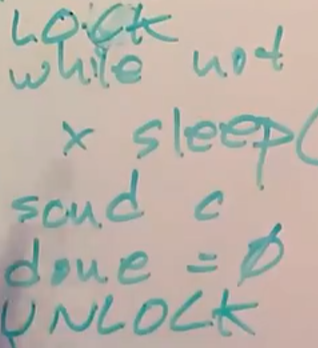 LOCK
while not
x sleep(
send c
done = Ø
UNLOCK